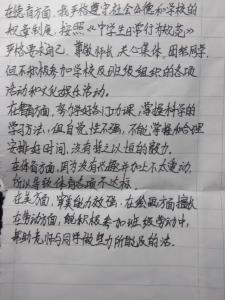 在德育方面，我严格遵守社会公德和学校的
规章制度。按照《中学生日常行为规范》
严格要求自己，尊敬师长，关心集体，团结同学，
但不积极参加学校及班级组织的各项
活动和文化娱乐活动。
在智育方面，努力学好各门功课，掌握科学的
学习方法，但自觉性不强，不能掌握和合理
安排好时间，没有持之以恒的毅力。
在体育方面，因为没有兴趣并加上不太爱动，
所以导致体育各项不达标。
在美方面，审美能力较强，在绘画方面擅长
在劳动方面，能积极参加班级劳动中，
帮助老师与同学做些力所能及的活。